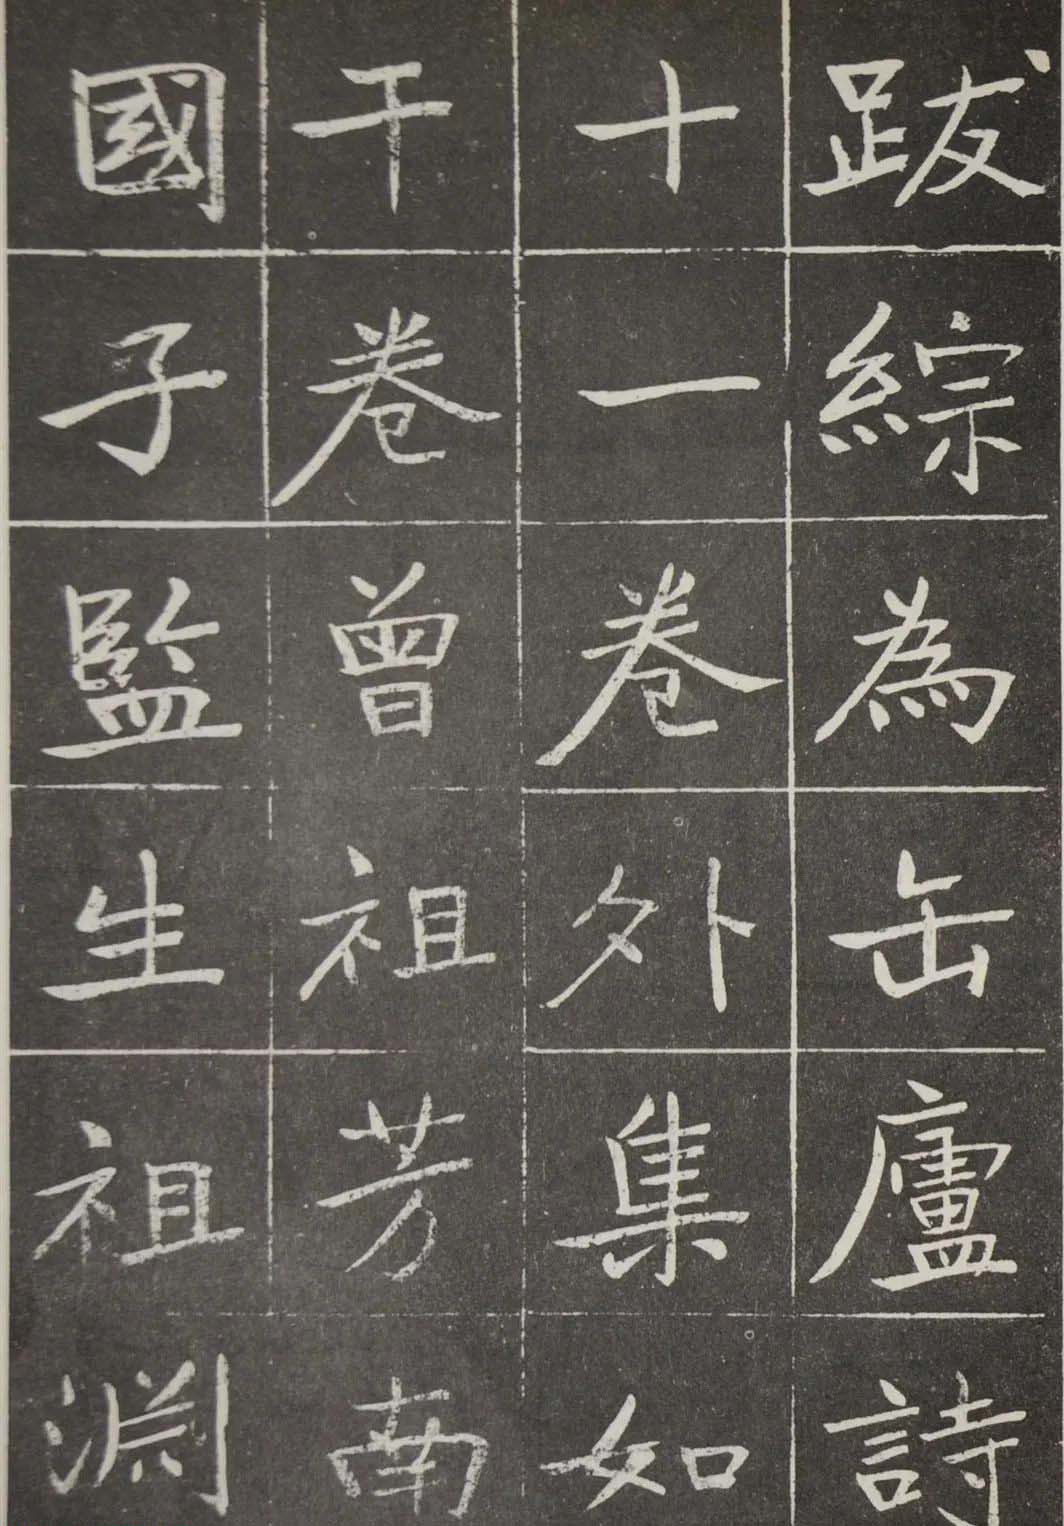 跋綜為缶廬詩
十一卷外集如
干卷曾祖芳南
國子監生祖淵